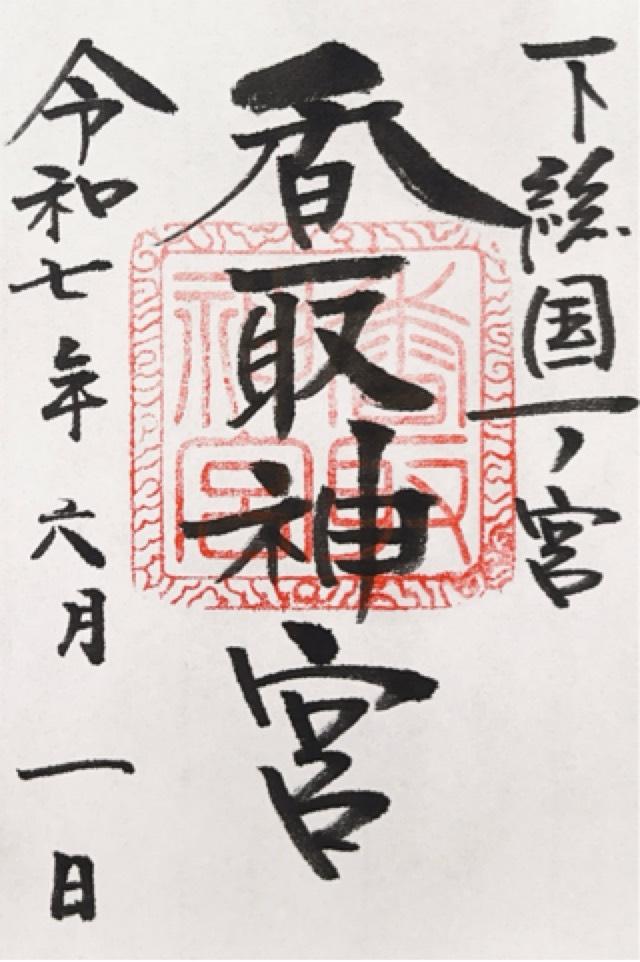 下総国一ノ宮
香取神宮
令和七年六月一日
香取
神宮